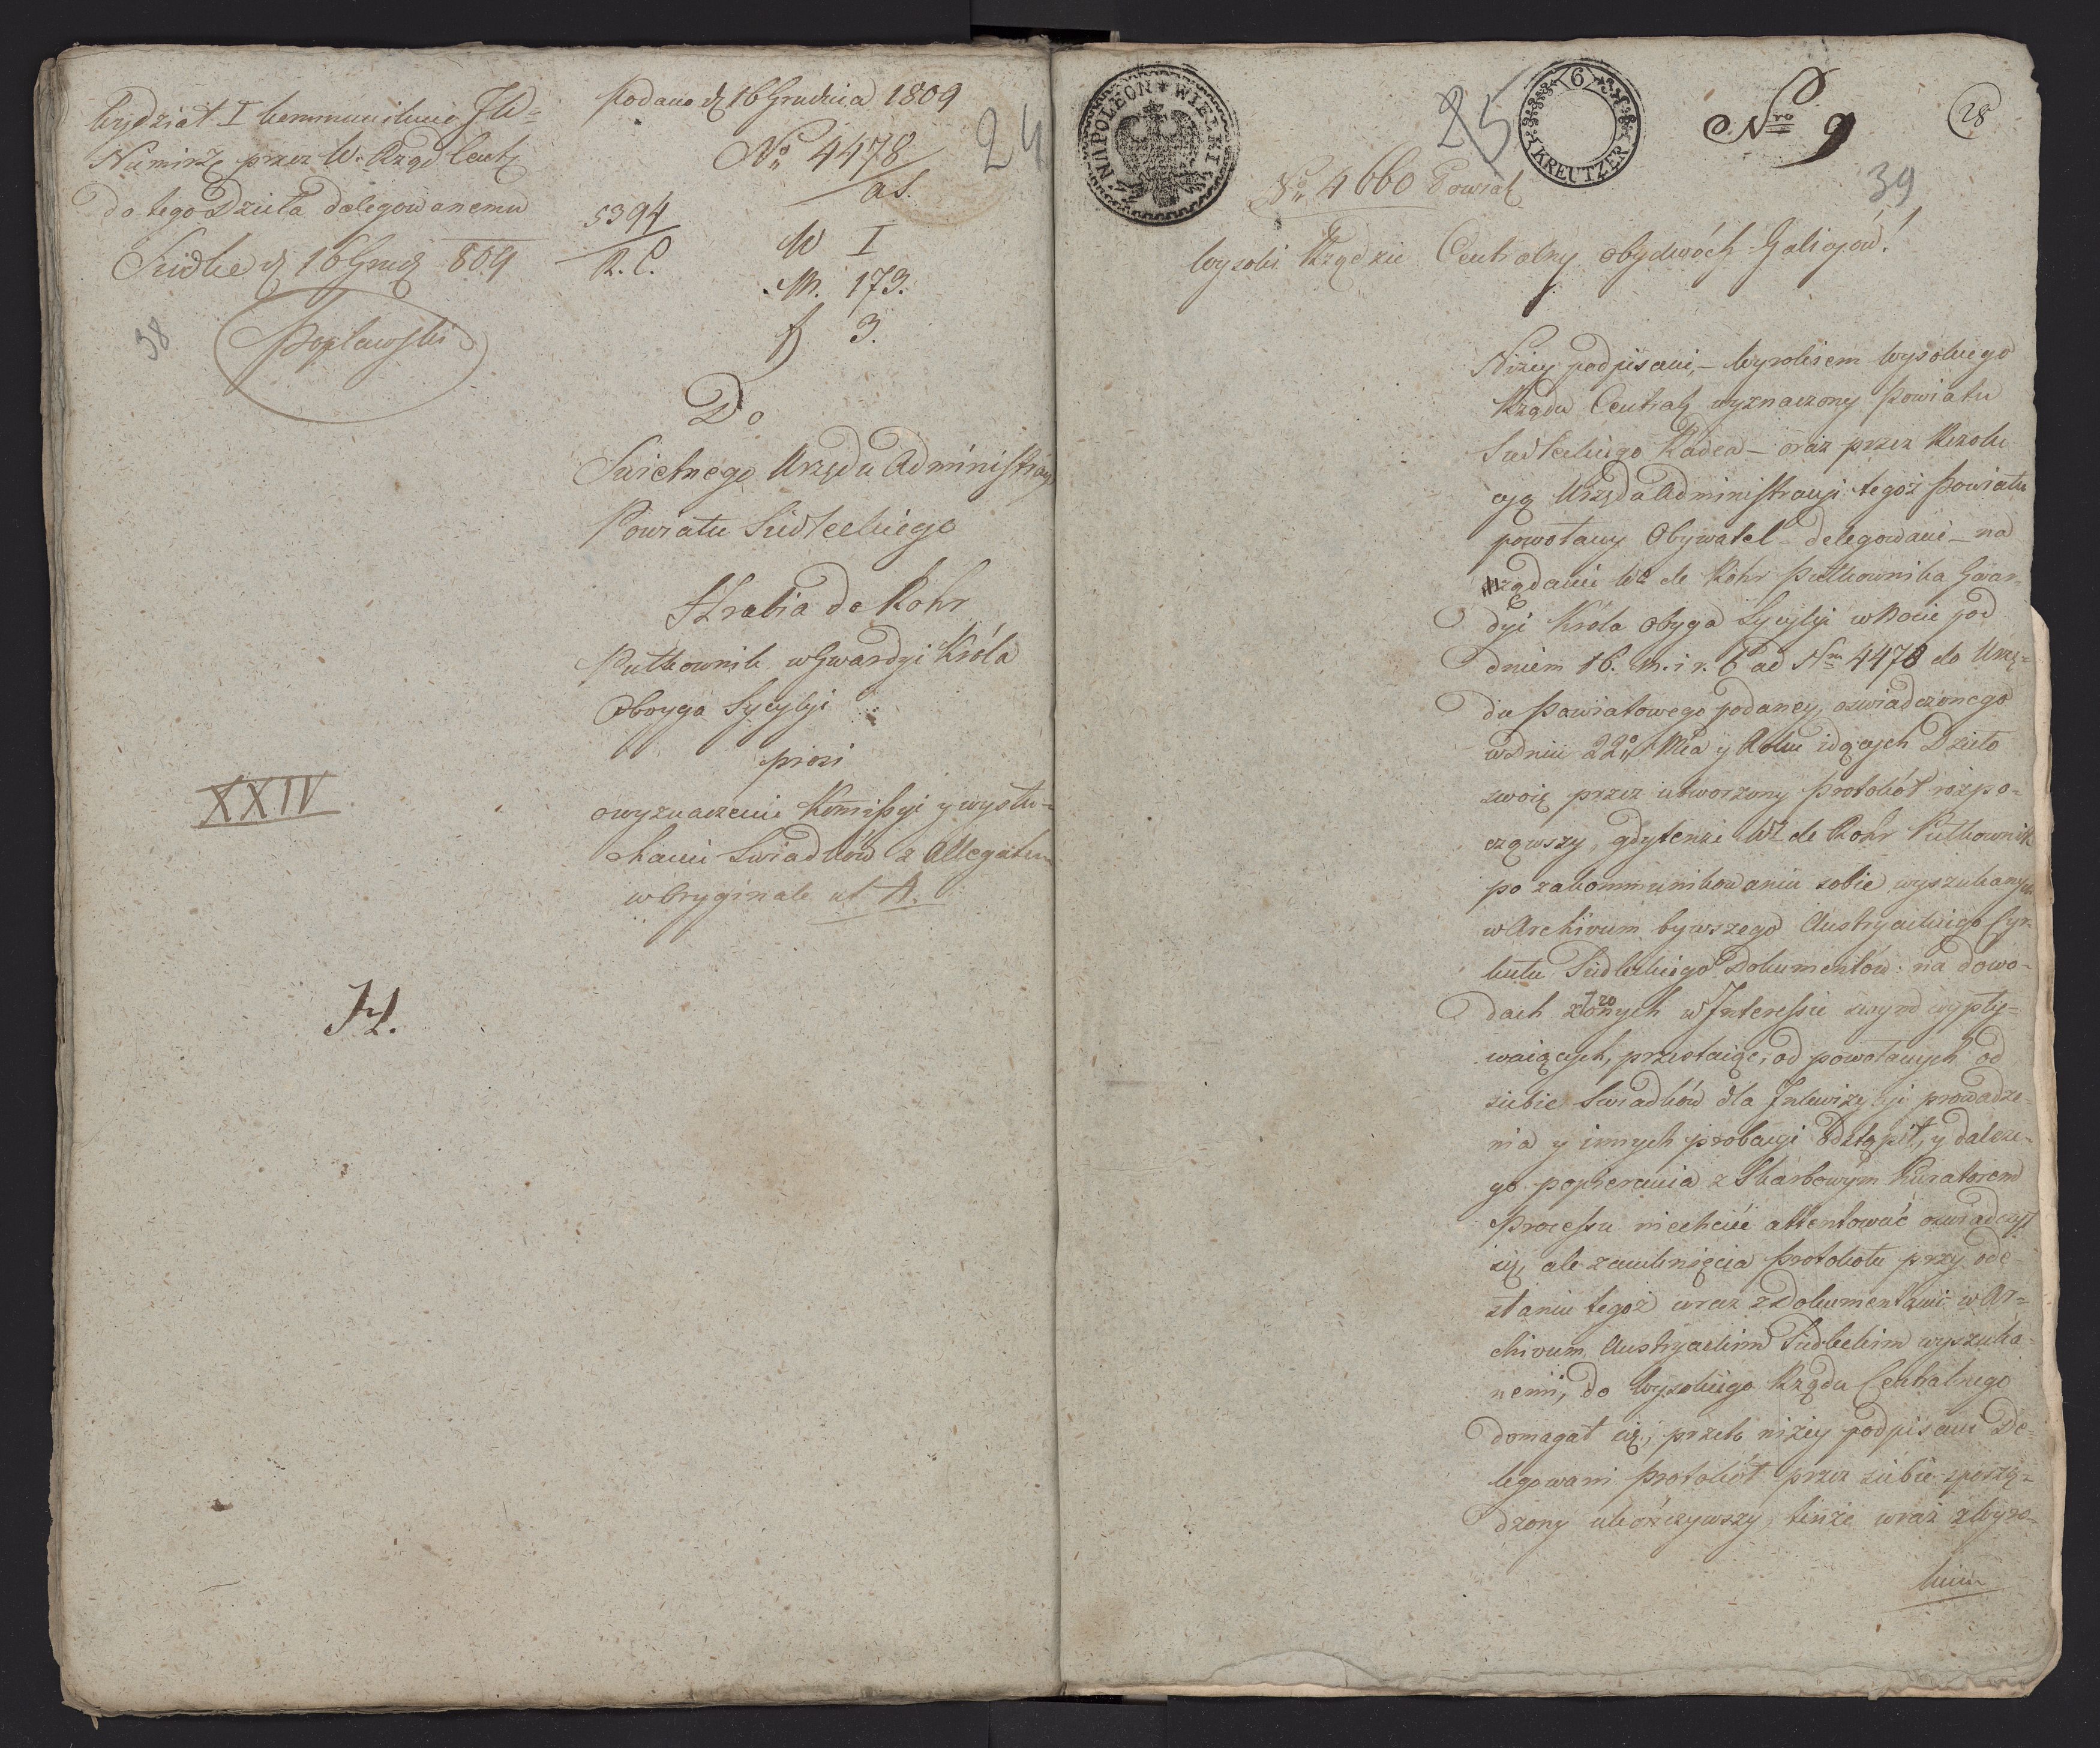 Wydział I kommunikuie JW=
Niemirzę przez W. Rząd Centr
do tego Dzieła delegowanemu
Siedlce d 16 Grud 809
Popławski
38
XXIV
H.
Podano d 16 Grudnia 1809
24
No 4478
as.
5394
R. C.
W I
M. 173.
f) 3.
Do
Swietnego Urzędu Administracyi
Powiatu Siedleckiego
Hrabia de Rohr
Pułkownik w Gwardyi Króla
Oboyga Sycylyi
prosi
o wyznaczenie Kommissyi y wysłu=
chanie Swiadków z Allegatem
w Oryginale ut A.
NAPOLEON * WIELKI
25
6 KREUTZER
Nro 9
28
39
No 4660 Powiat
Wysoki Rządzie Centralny obydwóch Galicyów!
Niżey podpisani, – wyrokiem Wysokiego
Rządu Central wyznaczony Powiatu
Siedleckiego Radca – oraz przez Rezolu
cyą Urzędu Administracyi tegoż Powiatu
powołany Obywatel delegowani – na
żądanie Wo de Rohr Pułkownika Gwar=
dyi Króla obyga Sycylyi w Nocie pod
dniem 16. m. i r. b. ad Nrm 4478 do Urzę=
du Powiatowego podaney, oswiadczonego
w dniu 22o Mca y Roku idących Dzieło
swoię przez utworzony Protokół rozpo=
cząwszy, gdy tenże Wż de Rohr Pułkownik
po zakommunikowaniu sobie wyszukanych
w Archivum bywszego Austryackiego Cyr=
kułu Siedleckiego Dokumentów: na dowo=
dach złożonych w Interessie swym wypły=
waiących, przestaiąc, od powołanych od
siebie Swiadków dla Inkwizycyi prowadze=
nia y innych probacyi odstąpił, y dalsze=
go popierania z Skarbowym Kuratorem
Processu niechcieć attentować oswiadczył
się, ale zamknięcia Protokołu przy ode
słaniu tegoż wraz z Dokumentami w Ar=
chivum Austryackim Siedleckim wyszuka=
nemi, do Wysokiego Rządu Centralnego
domagał się, przeto niżey podpisani De=
legowani Protokół przez siebie sporzą=
dzony ukończywszy, tenże wraz z Wyro=
kiem